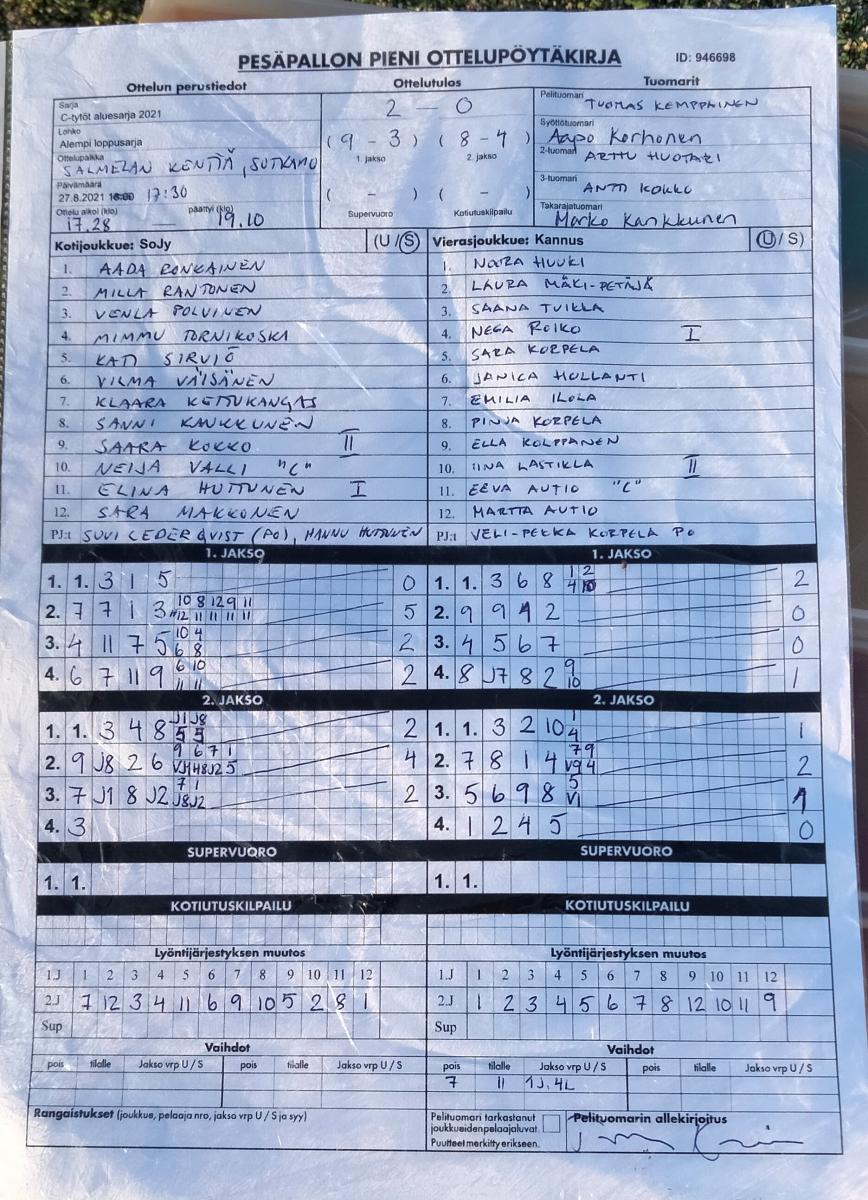 PESÄPALLON PIENI OTTELUPÖYTÄKIRJA ID: 946698
Ottelun perustiedot Ottelutulos Tuomarit
Sarja
C-tytöt aluesarja 2021
Lohko
Alempi loppusarja
Ottelupaikka
SALMELAN KENTTÄ, SOTKAMO
Päivämäärä
27.8.2021 18:00 17:30
Ottelu alkoi (klo) päättyi (klo)
17.28 — 19.10
2 – 0
(9 – 3) (8 – 4)
1. jakso 2. jakso
( – ) ( – )
Supervuoro Kotiutuskilpailu
Pelituomari TUOMAS KEMPPAINEN
Syöttötuomari
Aapo Korhonen
2-tuomari ARTTU HUOTARI
3-tuomari
ANTTI KOKKO
Takarajatuomari
Marko Kankkunen
Kotijoukkue: SoJy (U / S)
1. AADA RONKAINEN
2. MILLA RANTONEN
3. VENLA POLVINEN
4. MIMMU TORNIKOSKI
5. KATI SIRVIÖ
6. VILMA VÄISÄNEN
7. KLAARA KETTUKANGAS
8. SANNI KANKKUNEN
9. SAARA KOKKO II
10. NEIJA VALLI "C"
11. ELINA HUTTUNEN I
12. SARA MAKKONEN
PJ:t SUVI CEDERQVIST (PO), HANNU HUTTUNEN
Vierasjoukkue: Kannus (U / S)
1. NOORA HUUKI
2. LAURA MÄKI-PETÄJÄ
3. SAANA TVIKLA
4. NEEA ROIKO I
5. SARA KORPELA
6. JANICA HOLLANTI
7. EMILIA ILOLA
8. PINJA KORPELA
9. ELLA KOLPPANEN
10. IINA LASTIKLA II
11. EEVA AUTIO "C"
12. MARTTA AUTIO
PJ:t VELI-PEKKA KORPELA PO
1. JAKSO 1. JAKSO
1. 1. 3 1 5 0
2. 7 7 1 3 10 8 12 9 11 5
3. 4 11 7 5 10 4 2
6 8
4. 6 7 11 9 6 10 2
11 11
1. 1. 3 6 8 1 2 2
4 10
2. 9 9 1 2 0
3. 4 5 6 7 0
4. 8 J7 8 2 9 1
10
2. JAKSO 2. JAKSO
1. 1. 3 4 8 J1 J8 2
5 5
2. 9 J8 2 6 9 6 7 1 4
3. 7 J1 8 J2 7 1 2
J8 J2
4. 3
1. 1. 3 2 10 1 1
4
2. 7 8 1 4 7 9 2
V9 4
3. 5 6 9 8 5 1
V1
4. 1 2 4 5 0
SUPERVUORO SUPERVUORO
1. 1. 1. 1.
KOTIUTUSKILPAILU KOTIUTUSKILPAILU
Lyöntijärjestyksen muutos Lyöntijärjestyksen muutos
1.J 1 2 3 4 5 6 7 8 9 10 11 12
2.J 7 12 3 4 11 6 9 10 5 2 8 1
Sup
1.J 1 2 3 4 5 6 7 8 9 10 11 12
2.J 1 2 3 4 5 6 7 8 12 10 11 9
Sup
Vaihdot Vaihdot
pois tilalle Jakso vrp U / S pois tilalle Jakso vrp U / S
pois tilalle Jakso vrp U / S pois tilalle Jakso vrp U / S
7 11 1J, 4L
Rangaistukset (joukkue, pelaaja nro, jakso vrp U / S ja syy)
Pelituomari tarkastanut
joukkueiden pelaajaluvat.
Puutteet merkitty erikseen.
Pelituomarin allekirjoitus